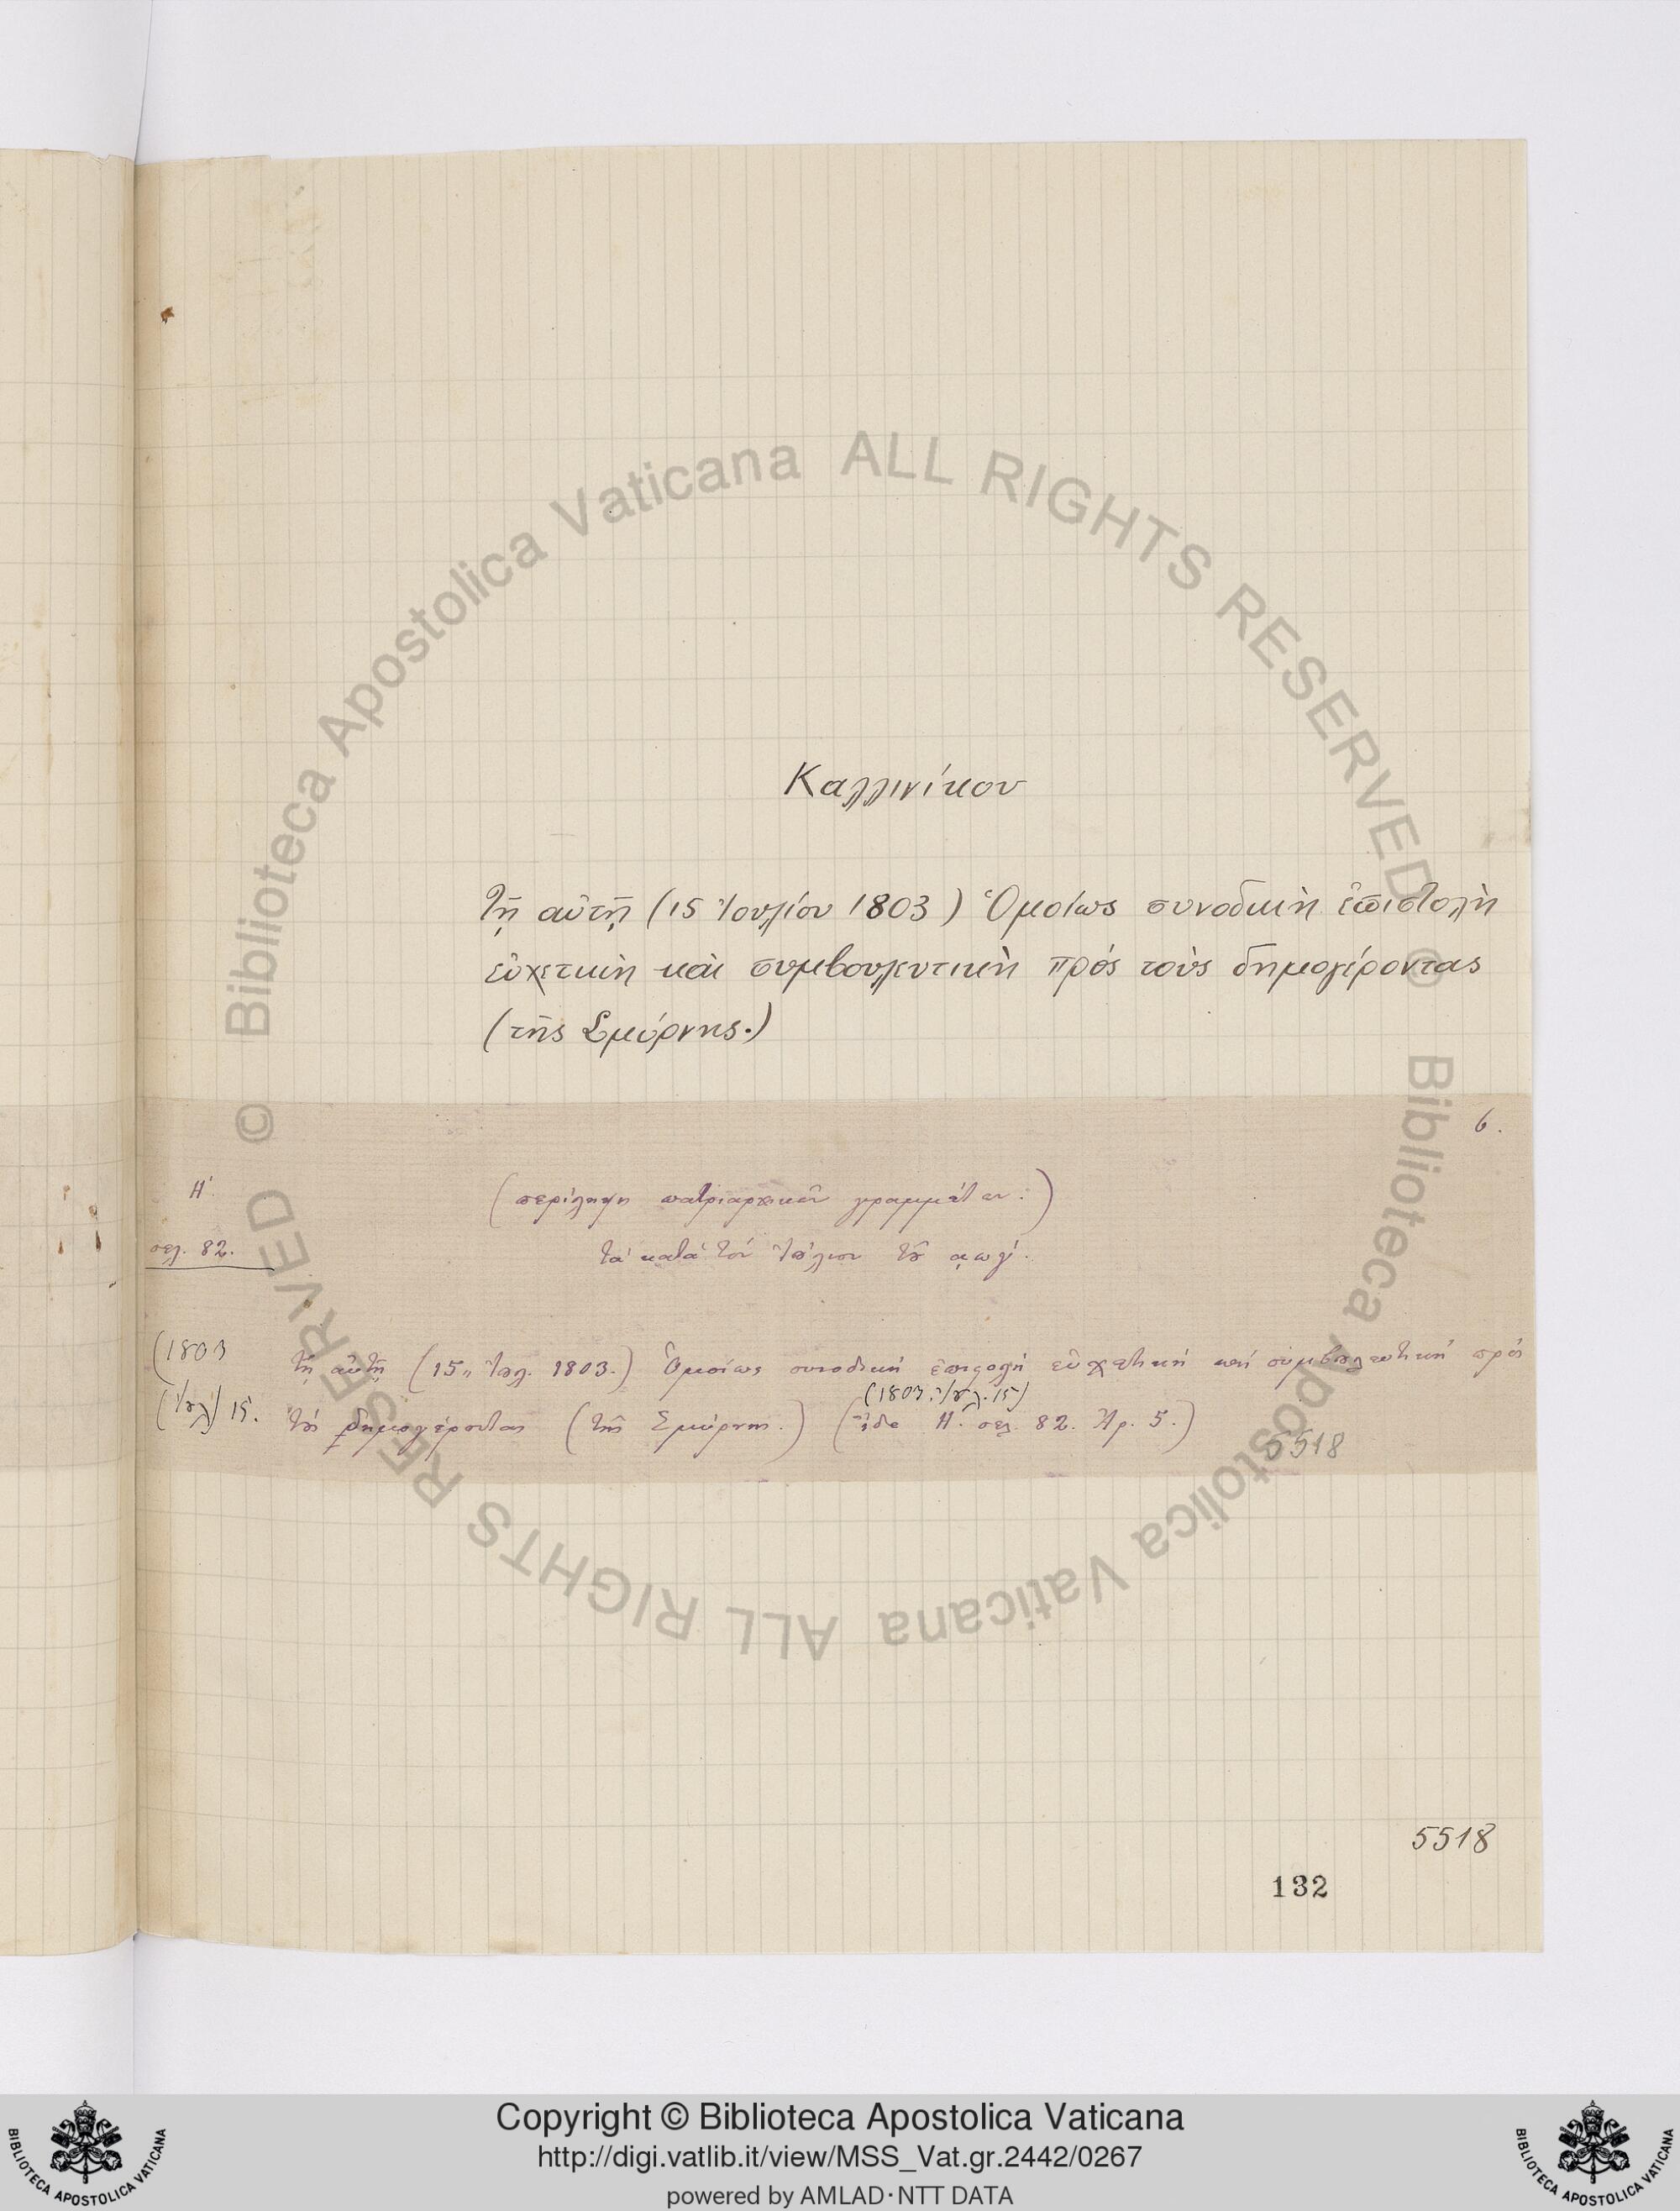 Καλλινίκου
Τῇ αὐτῇ (15 Ἰουλίου 1803) Ὁμοίως συνοδικὴ ἐπιστολὴ
εὐχετικὴ καὶ συμβουλευτικὴ πρὸς τοὺς δημογέροντας
(τῆς Σμύρνης.)
6.
Η΄. (περίληψη πατριαρχικῶν γραμμάτων.)
σελ. 82. τὰ κατὰ τὸν Ἰȣ́λιον τȣ͂ ͵αωγ΄.
(1803 τῇ αὐτῇ (15,, Ἰȣλ. 1803.) Ὁμοίως συνοδικὴ ἐπιϛολὴ εὐχετικὴ καὶ συμβȣλευτικὴ πρὸς
(1803. Ἰȣλ. 15)
(Ἰȣλ) 15. τȣ̀ς δημογέροντας (τῆς Σμύρνης.) (ἴδε Η. σελ. 82. Ἀρ. 5.) 5518
5518
132
© Biblioteca Apostolica Vaticana ALL RIGHTS RESERVED
© Biblioteca Apostolica Vaticana ALL RIGHTS RESERVED
BIBLIOTECA APOSTOLICA VATICANA
Copyright © Biblioteca Apostolica Vaticana
http://digi.vatlib.it/view/MSS_Vat.gr.2442/0267
powered by AMLAD·NTT DATA
BIBLIOTECA APOSTOLICA VATICANA